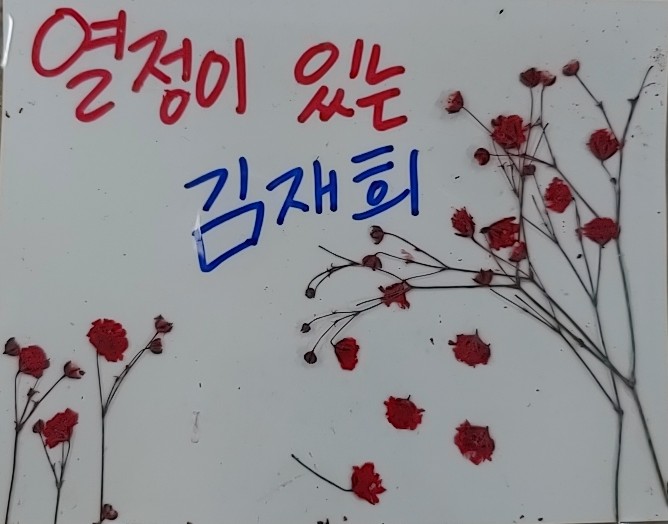 열정이 있는
김재희